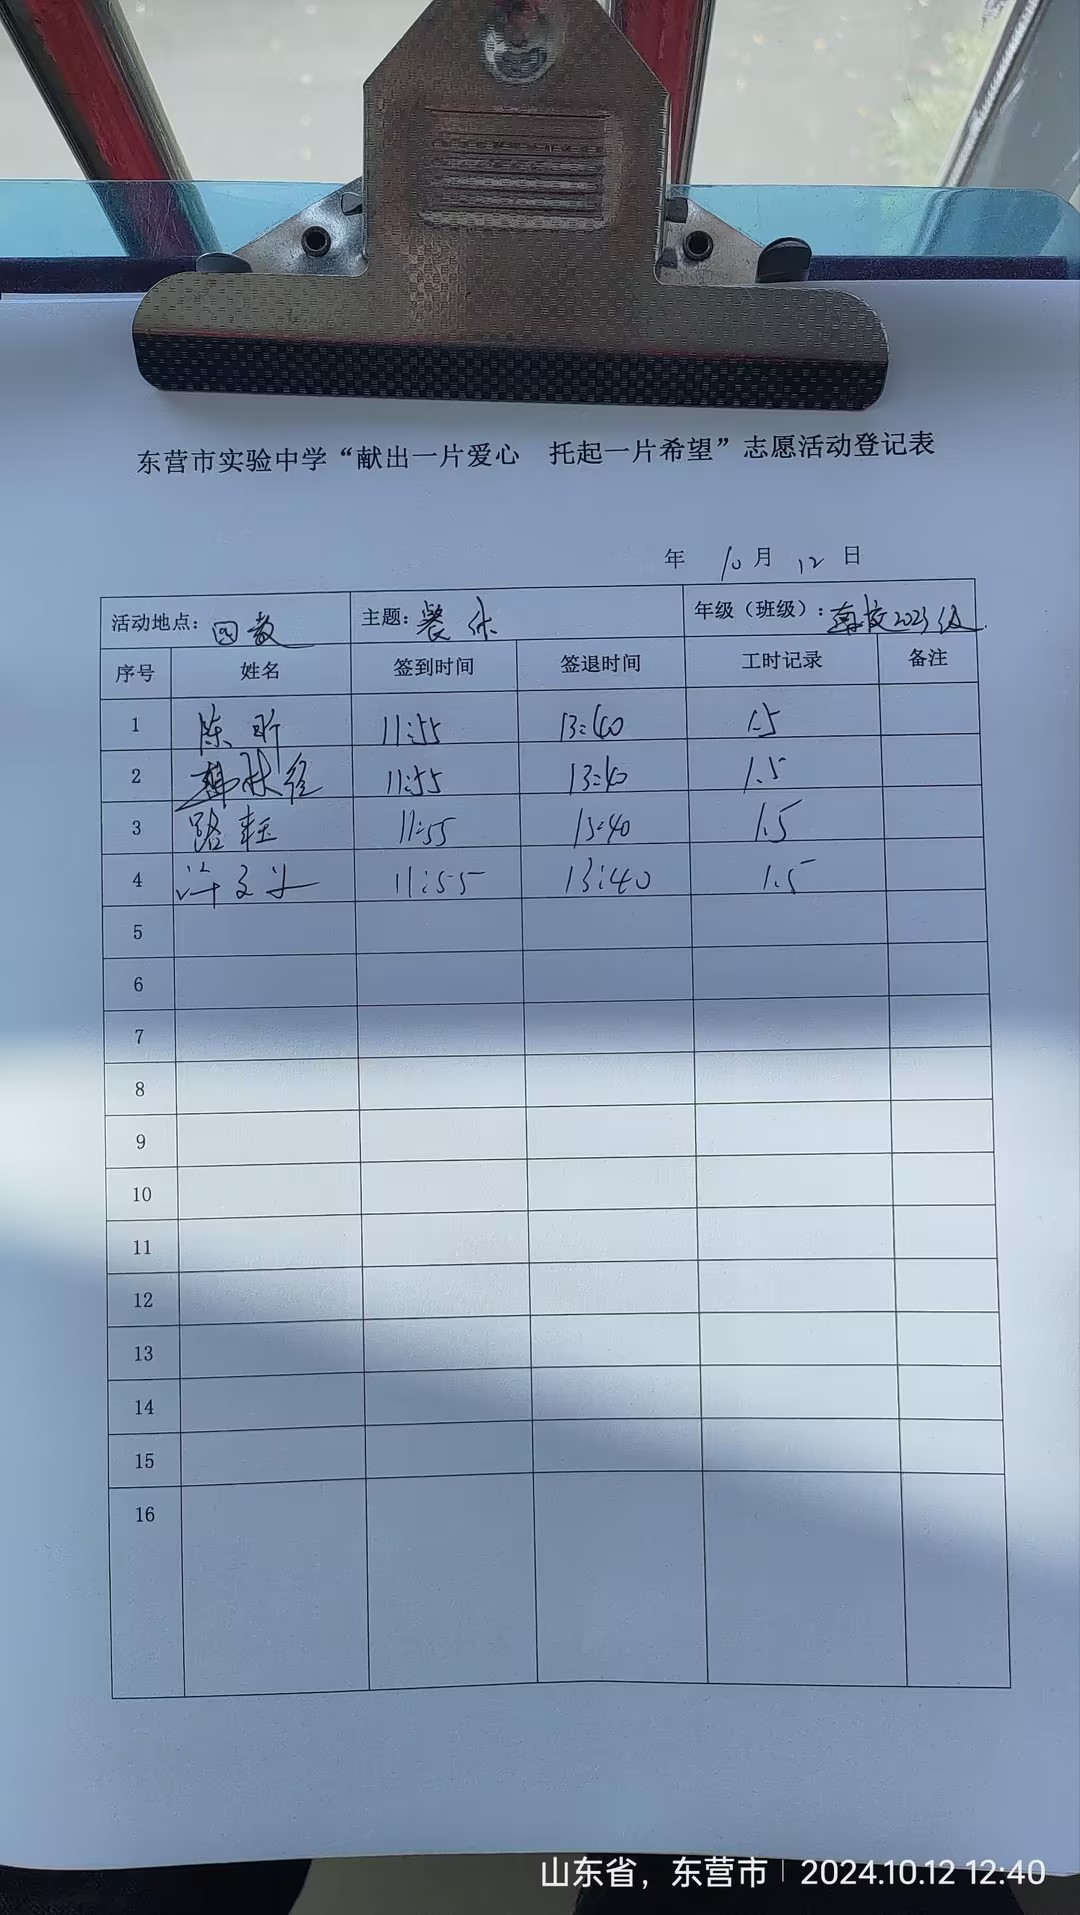 东营市实验中学“献出一片爱心 托起一片希望”志愿活动登记表
年 10月 12 日
活动地点：四教 主题：餐休 年级（班级）：南校2023级
序号 姓名 签到时间 签退时间 工时记录 备注
1 陈昕 11:55 13:40 1.5
2 11:55 13:40 1.5
3 路 11:55 13:40 1.5
4 许文 11:55 13:40 1.5
5
6
7
8
9
10
11
12
13
14
15
16
山东省，东营市 | 2024.10.12 12:40